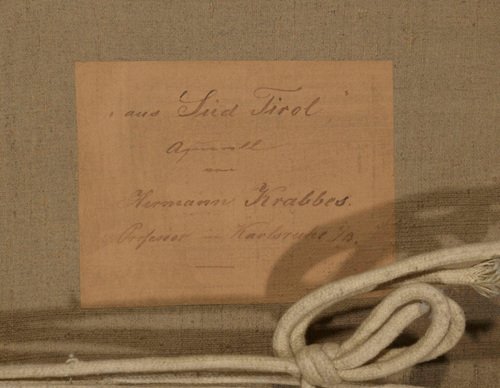 „aus Süd Tirol"
Aquarell
von
Hermann Krabbes.
Professor in Karlsruhe